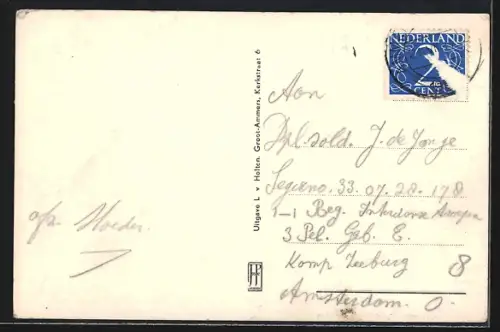 afz. Moeder
Uitgave L. v Holten. Groot-Ammers, Kerkstraat 6
NEDERLAND
2
CENT
Aan
Dpl. sold. J. de Jonge
33.07.28.178
1-1 Reg.
3 Pel. Geb. E.
Komp Zeeburg 8
Amsterdam. O.